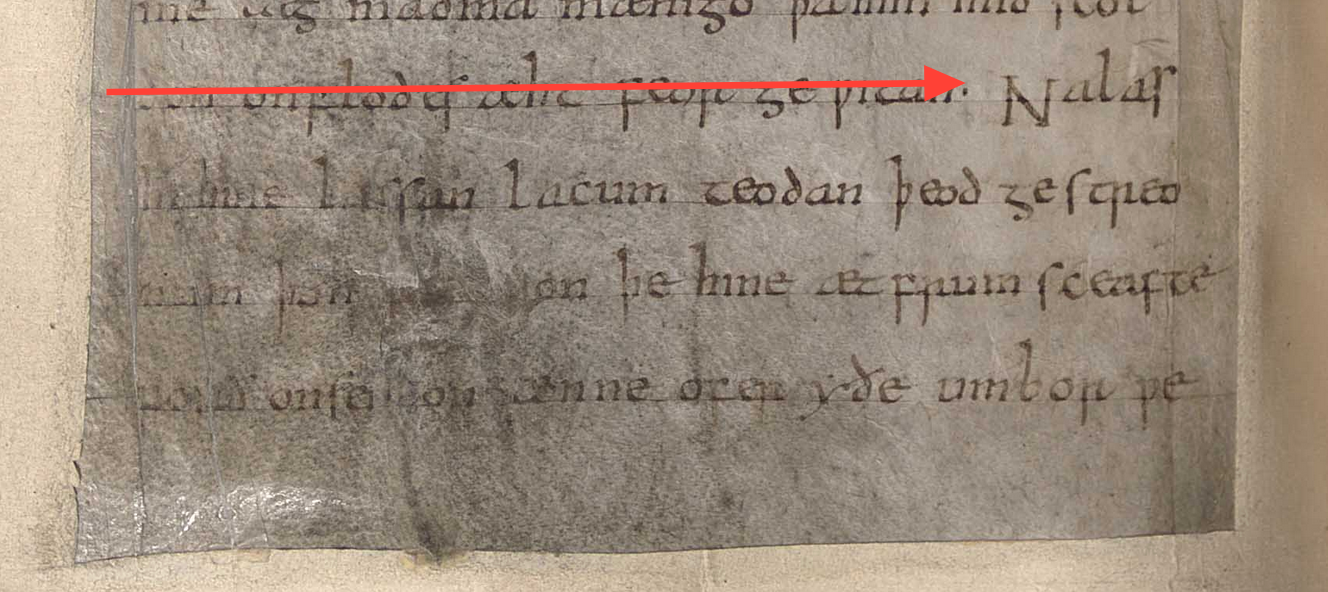 me læg madma mænigo þa him mid scol
don on flodes æht feor ge ƿitan. Nalæs
hi hine læssan lacum teodan þeod gestreo
num þon þa dydon þe hine æt frum sceafte
forð onsendon ænne ofer yðe umbor ƿe